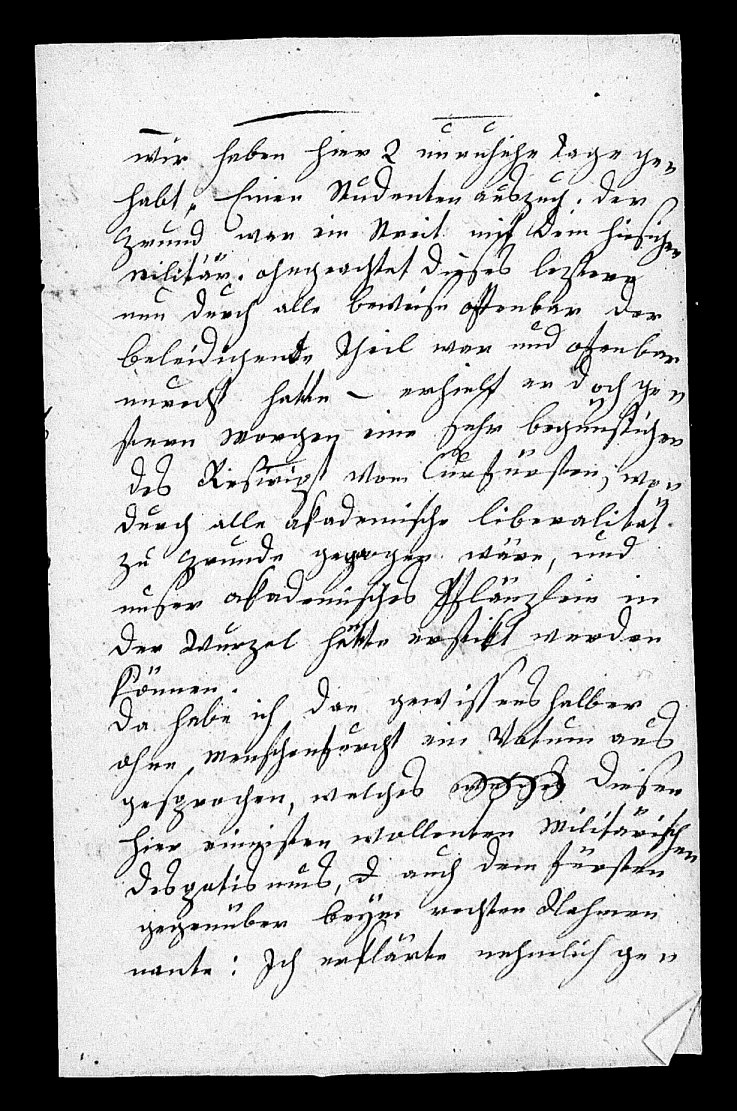 wir haben hier 2 unruhige tage ge-
habt, Einen Studenten auszug. der
grund war ein streit mit dem hiesigen
militär. ohngeachtet dieses leztere
nun durch alle beweise offenbar der
beleidichende theil war und ofenbar
unrecht hatte – erhielt er doch ge-
stern morgen eine sehr begünstigen-
des Reskript vom Curfürsten, wo-
durch alle akademische liberalität
zu grunde gegangen wäre, und
unser akademisches Pflänzlein in
der Wurzel hätte erstikt werden
können.
da habe ich dan gewissenshalber
ohne menschenfurcht ein Votum aus
gesprochen, welches diesen
hier einnisten wollenten Militärischen
despotismus, & auch dem fürsten
gegenüber beym rechten Nahmen
nante: Ich erklärte nehmlich ge-